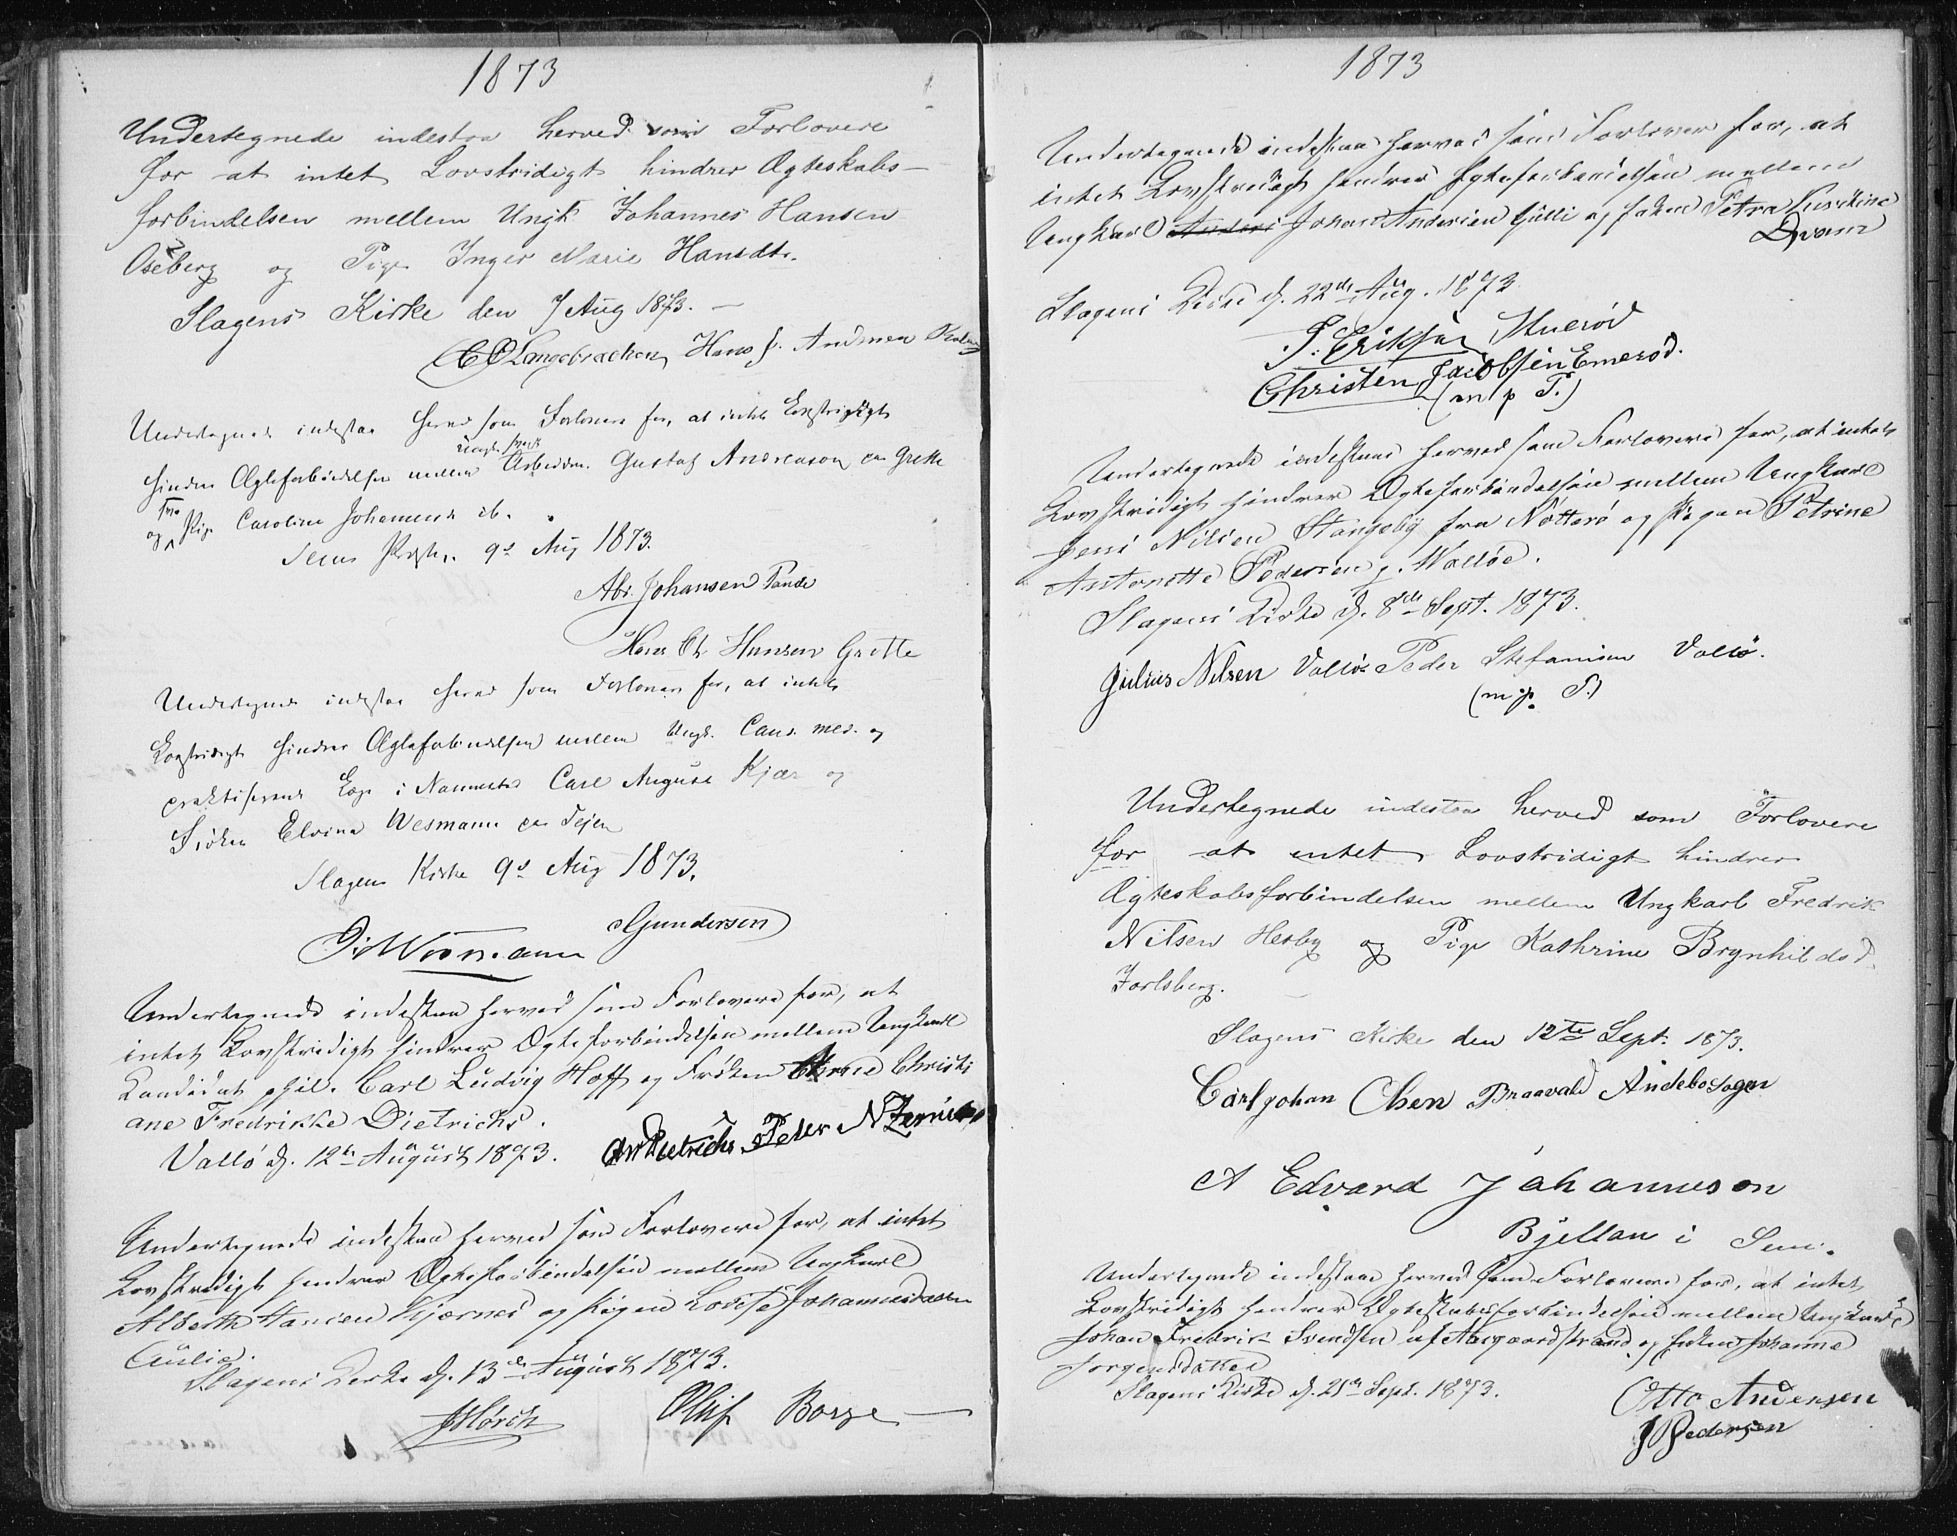 1873
Undertegnede indestaa herved som Forlovere
for at intet Lovstridigt hindrer Ægteskabs-
forbindelsen mellem Ungk. Johannes Hansen
Oseberg og Pige Inger Marie Hansdtr.
Slagens Kirke den 7 Aug 1873. —
Hans J. Andersen
Undertegnede indestaa herved som Forlovere for, at intet Lovstridigt
hindrer Ægteforbindelsen mellem Ungk. Arbeidsm. Gustaf Andreason paa Grette
og Pige Caroline Johannesd. ib.
9d Aug 1873.
Abr. Johansen Tande
Hans Chr. Hansen Grette
Undertegnede indestaa herved som Forlovere for, at intet
Lovstridigt hindrer Ægteforbindelsen mellem Ungk. Cand. med. og
praktiserende Læge i Carl August Kjær og
Frøken Elvina Wesmann paa Teien
Slagens Kirke 9d Aug 1873.
Gundersen
Undertegnede indestaa herved som Forlovere for, at
intet Lovstridigt hindrer Ægteforbindelsen mellem Ungkarl
Kandidat phil. Carl Ludvig Hoff og Frøken Christi
ane Fredrikke Dietrichs.
Vallø d. 12te August 1873. Dietrichs Peder N
Undertegnede indestaa herved som Forlovere for, at intet
Lovstridigt hindrer Ægteforbindelsen mellem Ungkarl
Alberth Hansen Kjærnes og Pigen Lovise Johannesdatter
Aulie.
Slagens Kirke d. 13de August 1873.
JMørch Oluf Borge
1873
Undertegnede indestaa herved som Forlover for, at
intet Lovstridigt hindrer Ægteforbindelsen mellem
Ungkarl Johan Andersen Gulli og Petra Kirstine
Slagens Kirke d. 22de Aug. 1873
Eriksen
Christen Jacobsen Emerød.
(m p P.)
Undertegnede indestaa herved som Forlovere for, at intet
Lovstridigt hindrer Ægteforbindelsen mellem Ungkarl
Jens Nilsen Stangeby fra Nøtterø og Pigen Petrine
Antonette Pedersen g. Walløe.
Slagens Kirke d. 8de Sept. 1873.
Julius Nilsen Valløe Peder Stefanisen Vallø.
(m. p. P.)
Undertegnede indestaa herved som Forlovere
for at intet Lovstridigt hindrer
Ægteskabsforbindelsen mellem Ungkarl Fredrik
Nilsen Hesby og Pige Kathrine Brynhildsd.
Jarlsberg.
Slagens Kirke den 12te Sept. 1873.
Carl johan Olsen Braavald Andebo sogn
A Edvard Johanneson
Bjelland i Sem.
Undertegnede indestaa herved som Forlovere for, at intet
Lovstridigt hindrer Ægteskabsforbindelsen mellem Ungkarl
Johan Fredrik Svendsen af Aasgaardstrand og Johanne
Jørgensdatter
Slagens Kirke d. 21de Sept. 1873.
Otto Andersen
Pedersen